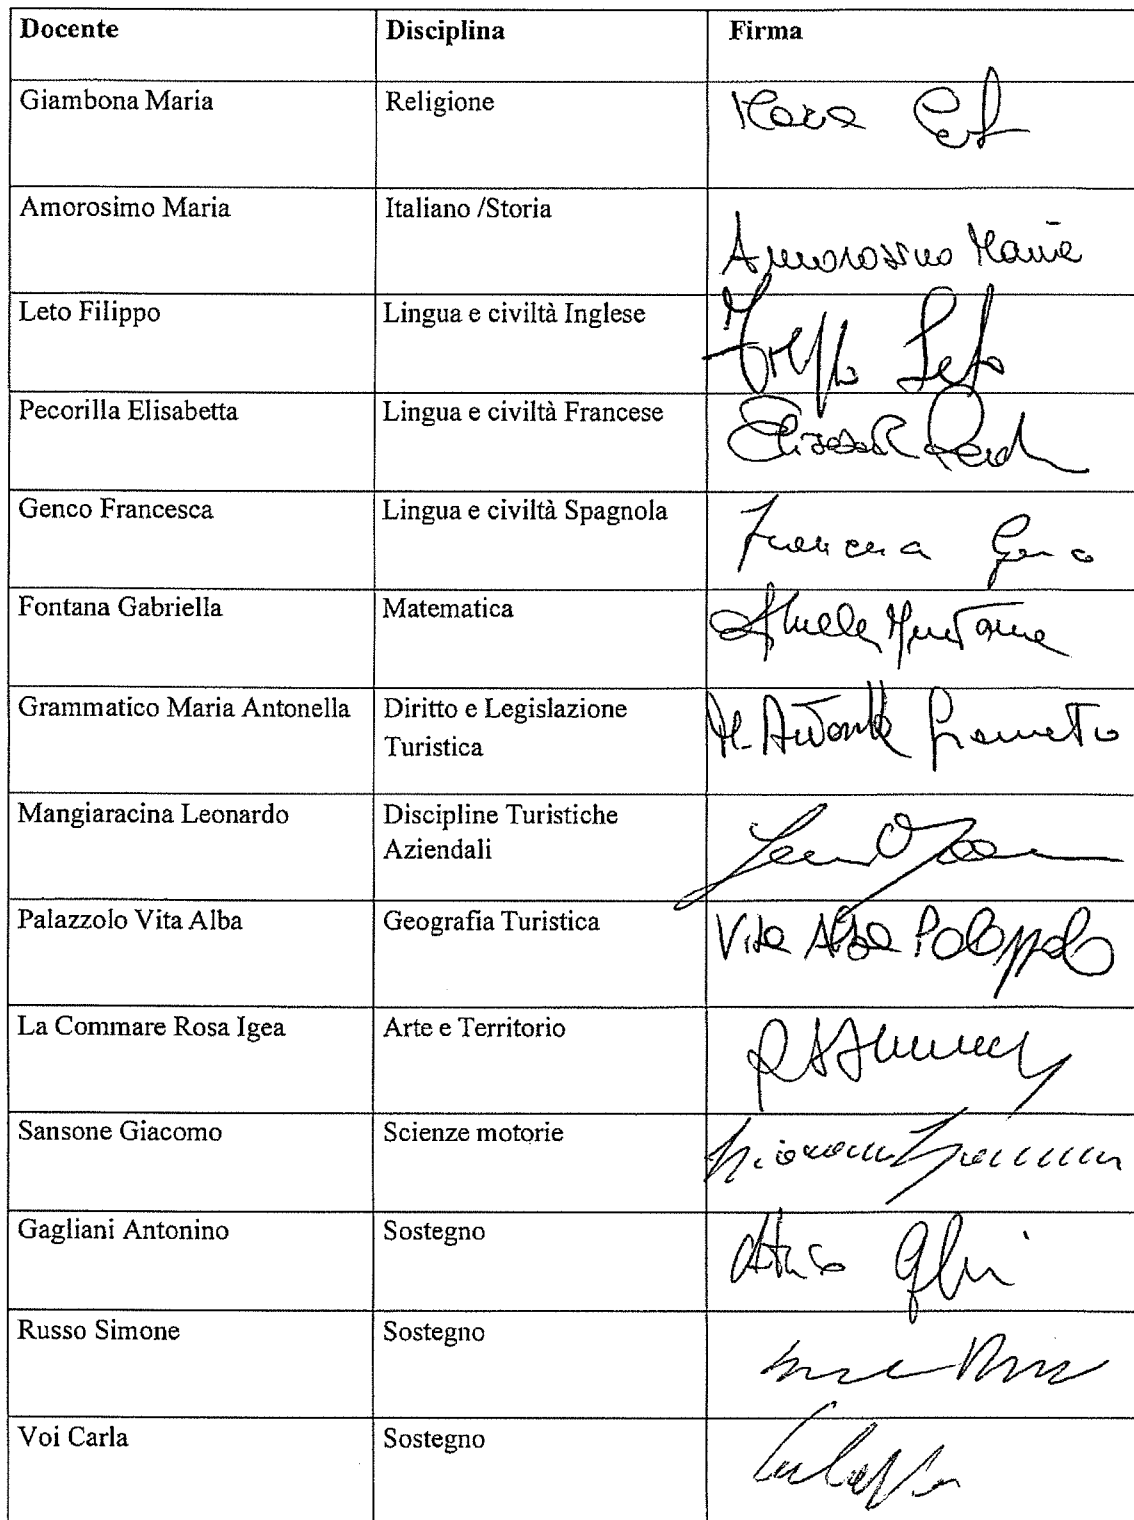 Docente Disciplina Firma
Giambona Maria Religione
Amorosimo Maria Italiano /Storia
Amorosino Maria
Leto Filippo Lingua e civiltà Inglese
Leto
Pecorilla Elisabetta Lingua e civiltà Francese
Genco Francesca Lingua e civiltà Spagnola
Francesca
Fontana Gabriella Matematica
Grammatico Maria Antonella Diritto e Legislazione
Turistica
Mangiaracina Leonardo Discipline Turistiche
Aziendali
Palazzolo Vita Alba Geografia Turistica
Vita Alba Palazzolo
La Commare Rosa Igea Arte e Territorio
Sansone Giacomo Scienze motorie
Gagliani Antonino Sostegno
Russo Simone Sostegno
Voi Carla Sostegno